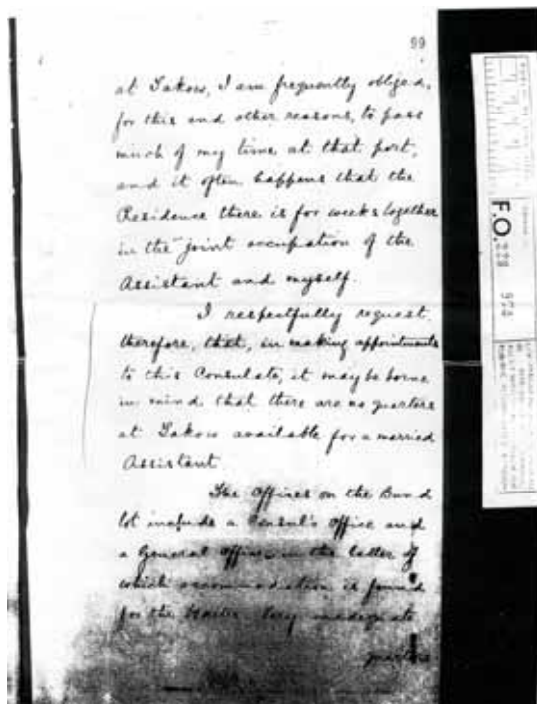 99
at Takow, I am frequently obliged,
for this and other reasons, to pass
much of my time at that port,
and it often happens that the
Residence there is for weeks together
in the joint occupation of the
Assistant and myself.
I respectfully request,
therefore, that, in making appointments
to this Consulate, it may be borne
in mind that there are no quarters
at Takow available for a married
Assistant.
The Offices on the Bund
lot include a Consul's Office and
a General Office in the latter of
which accommodation is found
for the Very inadequate
quarters
F.O. 228 974